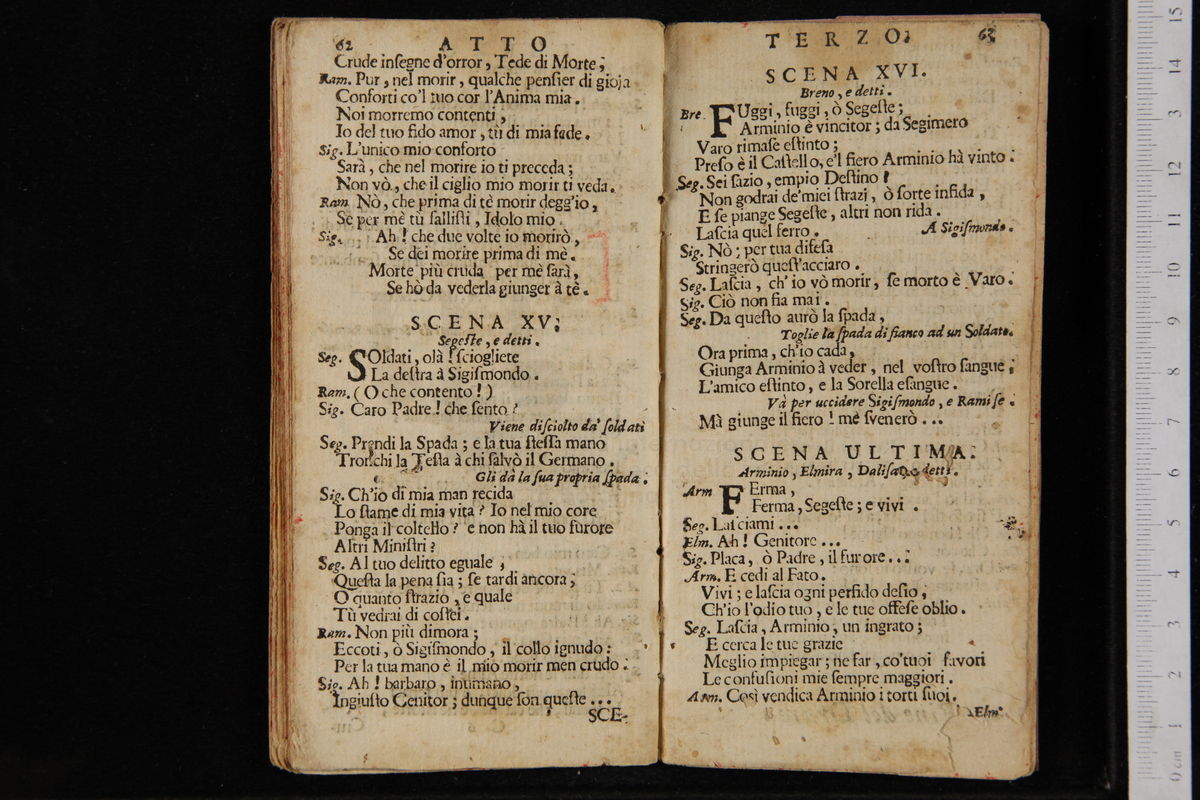 62 ATTO
Crude inſegne d'orror, Tede di Morte;
Ram. Pur, nel morir, qualche penſier di gioja
Conforti co'l tuo cor l'Anima mia.
Noi morremo contenti,
Io del tuo fido amor, tù di mia fede.
Sig. L'unico mio conforto
Sarà, che nel morire io ti preceda;
Non vò, che il ciglio mio morir ti veda.
Ram. Nò, che prima di tè morir degg'io,
Se per mè tù falliſti, Idolo mio.
Sig. Ah! che due volte io morirò,
Se dei morire prima di mè.
Morte più cruda per mè ſarà,
Se hò da vederla giunger à tè.
SCENA XV;
Segeſte, e detti.
Seg. SOldati, olà! ſciogliete
La deſtra à Sigiſmondo.
Ram. (O che contento!)
Sig. Caro Padre! che ſento?
Viene diſciolto da' ſoldati
Seg. Prendi la Spada; e la tua ſteſſa mano
Tronchi la Teſta à chi ſalvò il Germano.
Gli dà la ſua propria ſpada.
Sig. Ch'io di mia man recida
Lo ſtame di mia vita? Io nel mio core
Ponga il coltello? e non hà il tuo furore
Altri Miniſtri?
Seg. Al tuo delitto eguale,
Queſta la pena ſia; ſe tardi ancora,
O quanto ſtrazio, e quale
Tù vedrai di coſtei.
Ram. Non più dimora;
Eccoti, ò Sigiſmondo, il collo ignudo:
Per la tua mano è il mio morir men crudo.
Sig. Ah! barbaro, inumano,
Ingiuſto Genitor; dunque ſon queſte...
SCE-
TERZO. 63
SCENA XVI.
Breno, e detti.
Bre. FUggi, fuggi, ò Segeſte;
Arminio è vincitor; da Segimero
Varo rimaſe eſtinto;
Preſo è il Caſtello, e'l fiero Arminio hà vinto.
Seg. Sei ſazio, empio Deſtino?
Non godrai de'miei ſtrazj, ò ſorte infida,
E ſe piange Segeſte, altri non rida.
Laſcia quel ferro. A Sigiſmondo.
Sig. Nò; per tua difeſa
Stringerò queſt'acciaro.
Seg. Laſcia, ch'io vò morir, ſe morto è Varo.
Sig. Ciò non fia mai.
Seg. Da queſto aurò la ſpada,
Toglie la ſpada di fianco ad un Soldato.
Ora prima, ch'io cada,
Giunga Arminio à veder, nel voſtro ſangue;
L'amico eſtinto, e la Sorella eſangue.
Và per uccidere Sigiſmondo, e Ramiſe.
Mà giunge il fiero! mè ſvenerò...
SCENA ULTIMA.
Arminio, Elmira, Daliſa, e detti.
Arm FErma,
Ferma, Segeſte; e vivi.
Seg. Laſciami...
Elm. Ah! Genitore...
Sig. Placa, ò Padre, il furore...
Arm. E cedi al Fato.
Vivi; e laſcia ogni perfido deſio,
Ch'io l'odio tuo, e le tue offeſe oblio.
Seg. Laſcia, Arminio, un ingrato;
E cerca le tue grazie
Meglio impiegar; ne far, co'tuoi favori
Le confuſioni mie ſempre maggiori.
Arm. Così vendica Arminio i torti ſuoi.
Elm.